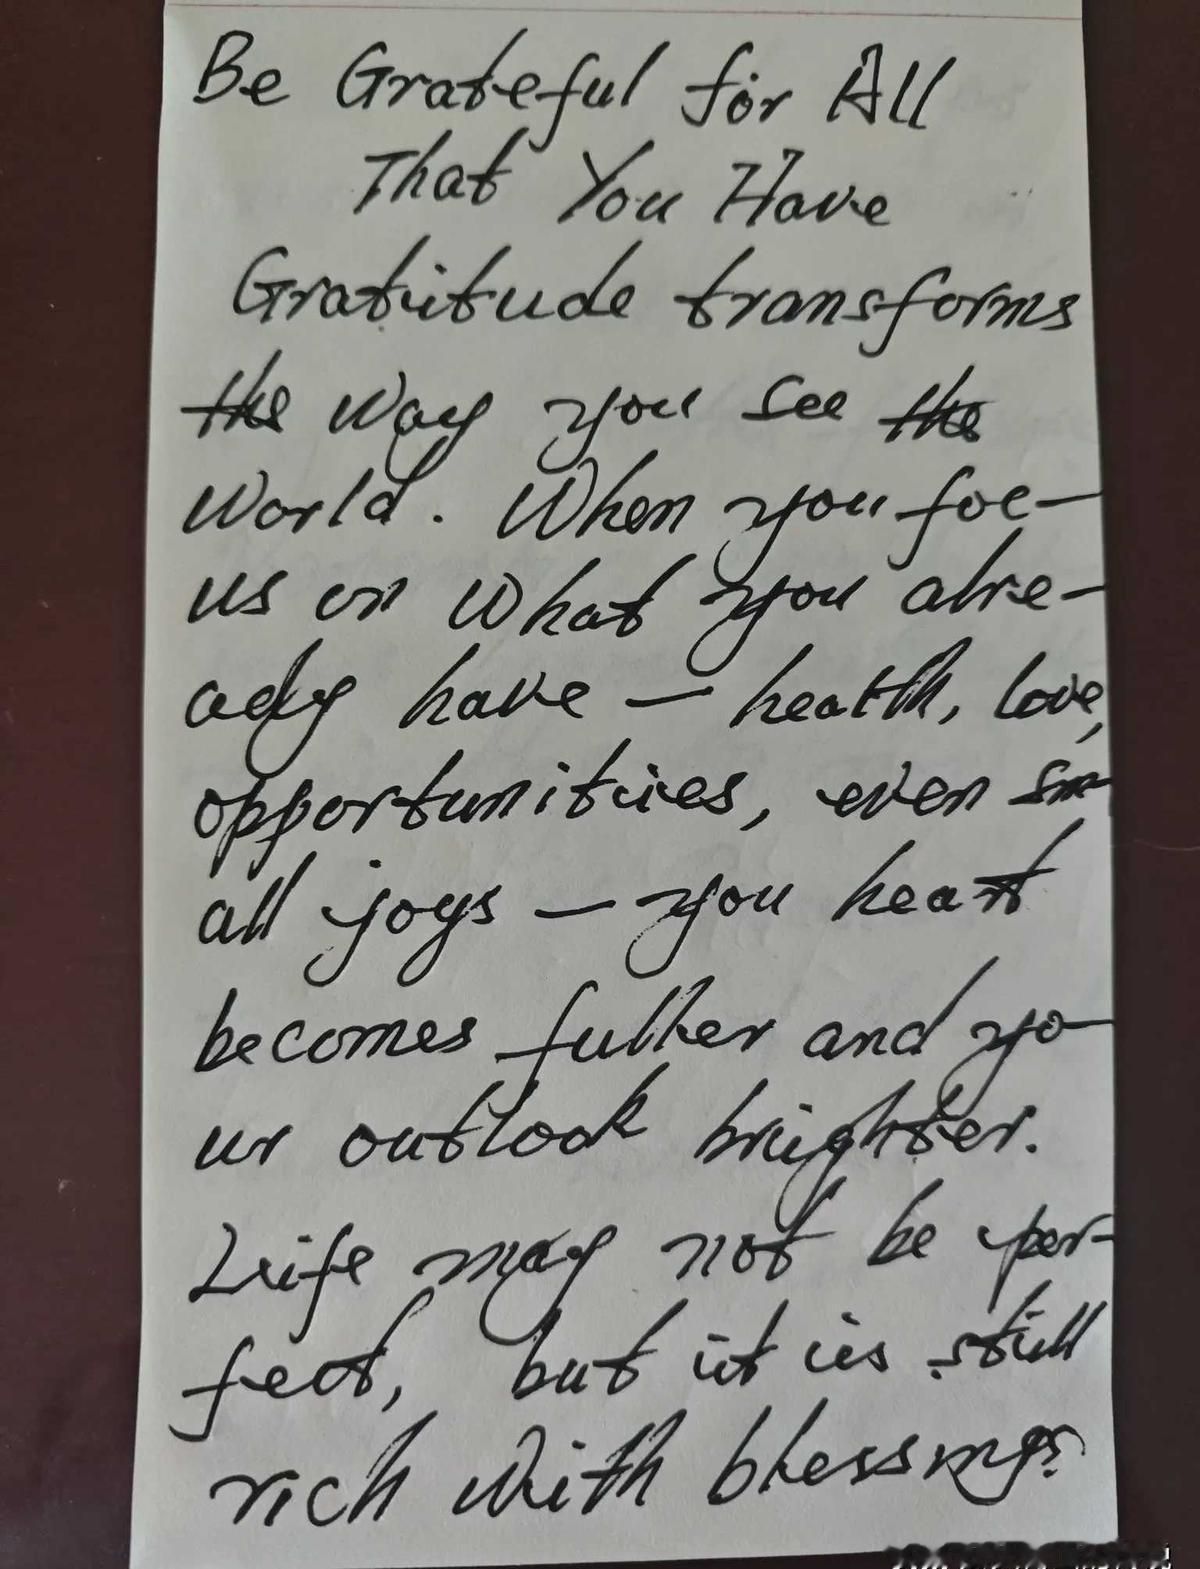 Be Grateful for All
That You Have
Gratitude transforms
the way you see the
World. When you foc-
us on what you alre-
ady have — health, love,
opportunities, even sm-
all joys — you heart
becomes fuller and yo-
ur outlook brighter.
Life may not be per-
fect, but it is still
rich with blessings.